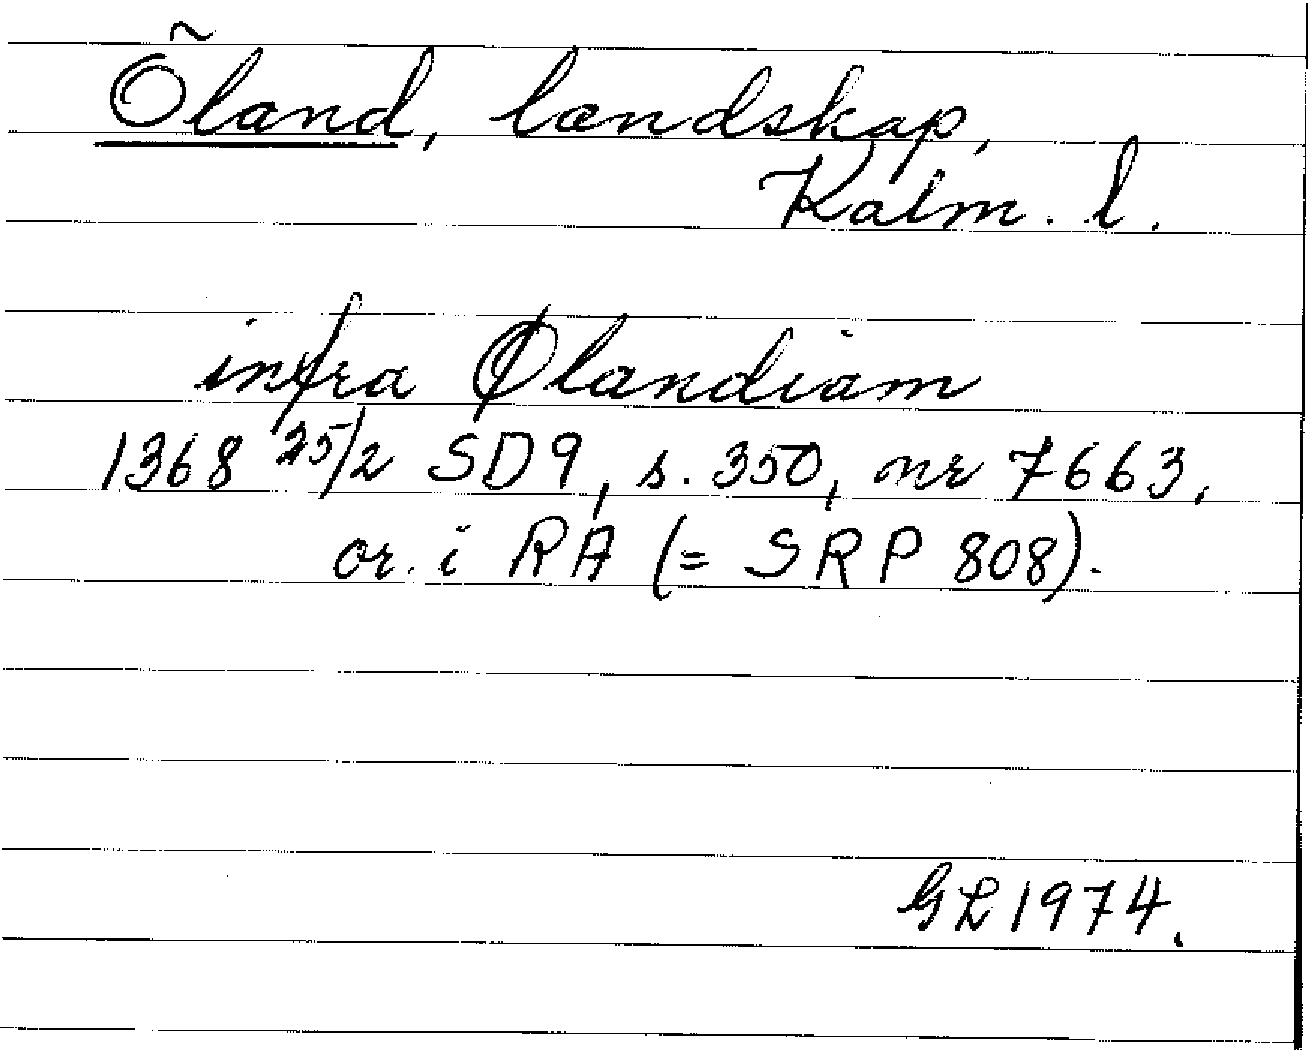 Öland, landskap,
Kalm. l.
infra Ølandiam
1368 25/2 SD9, s. 350, nr 7663,
or. i RA (= SRP 808).
GL 1974.